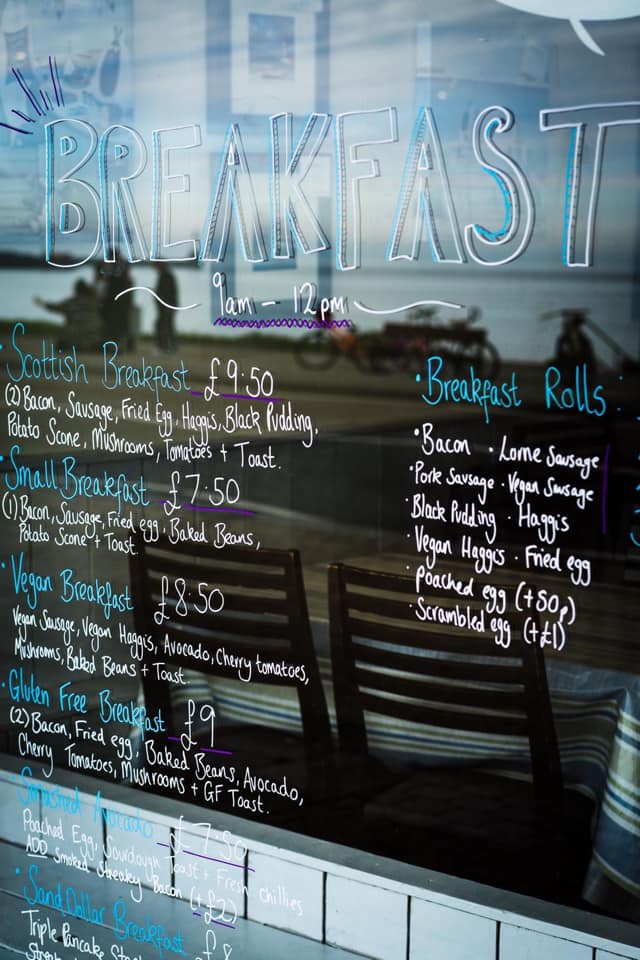 BREAKFAST
9am - 12pm
• Scottish Breakfast £9.50
(2) Bacon, Sausage, Fried Egg, Haggis, Black Pudding,
Potato Scone, Mushrooms, Tomatoes + Toast.
• Small Breakfast £7.50
(1) Bacon, Sausage, Fried egg, Baked Beans,
Potato Scone + Toast.
• Vegan Breakfast £8.50
Vegan Sausage, Vegan Haggis, Avocado, Cherry tomatoes,
Mushrooms, Baked Beans + Toast.
• Gluten Free Breakfast £9
(2) Bacon, Fried egg, Baked Beans, Avocado,
Cherry Tomatoes, Mushrooms + GF Toast.
• Smashed Avocado £7.50
Poached Egg, Sourdough Toast + Fresh chillies
ADD Smoked Streaky Bacon (+£2)
• Sand Dollar Breakfast £8
Triple Pancake
• Breakfast Rolls:
• Bacon • Lorne Sausage
• Pork Sausage • Vegan Sausage
• Black Pudding • Haggis
• Vegan Haggis • Fried egg
• Poached egg (+50p)
• Scrambled egg (+£1)